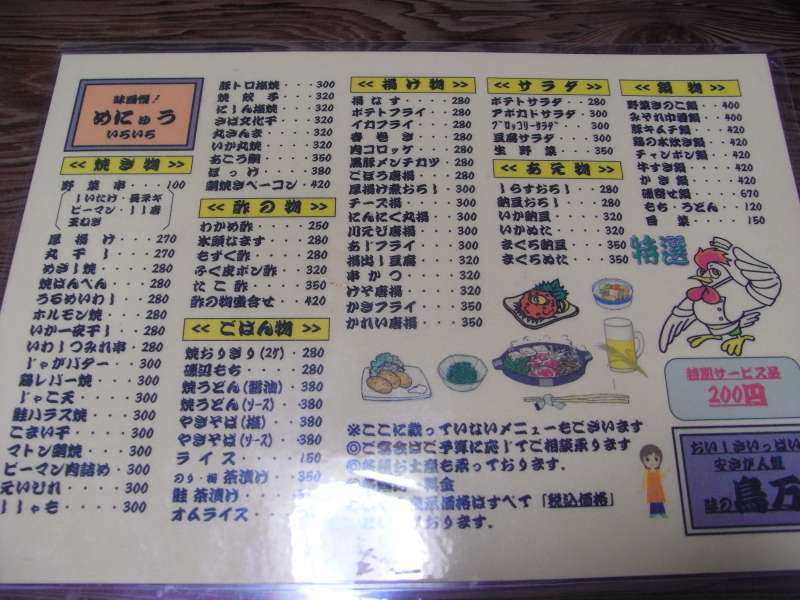 味自慢!
めにゅう
いろいろ
<< 焼き物 >>
野菜串・・・100
しいたけ・長ネギ
ピーマン・しし唐
玉ねぎ
厚揚げ・・・270
丸干し・・・270
めざし焼・・・280
焼はんぺん・・280
うるめいわし・280
ホルモン焼・・・280
いか一夜干し・・280
いわしつみれ串・280
じゃがバター・・・300
鶏レバー焼・・・300
じゃこ天・・・・300
鮭ハラス焼・・・300
こまい干・・・・300
マトン鍋焼・・・300
ピーマン肉詰め・・300
えいひれ・・・300
ししゃも・・・300
豚トロ塩焼・・・300
焼餃子・・・320
にしん塩焼・・・320
さば文化干・・・320
丸さんま・・・320
いか丸焼・・・320
あこう鯛・・・350
ほっけ・・・380
鯛焼きベーコン・420
<< 酢の物 >>
わかめ酢・・・250
氷頭なます・・280
もずく酢・・・280
ふく皮ポン酢・・320
たこ酢・・・350
酢の物盛合せ・・420
<< ごはん物 >>
焼おりぎり(2ケ)・280
磯辺もち・・・280
焼うどん(醤油)・380
焼うどん(ソース)・380
やきそば(塩)・・380
やきそば(ソース)・380
ライス・・・150
のり・梅 茶漬け・・350
鮭 茶漬け・・・350
オムライス・・・
<< 揚げ物 >>
揚なす・・・280
ポテトフライ・・・280
イカフライ・・・280
春巻き・・・280
肉コロッケ・・・280
黒豚メンチカツ・・280
ごぼう唐揚・・・280
厚揚げ煮おろし・・300
チーズ揚・・・300
にんにく丸揚・・300
川えび唐揚・・・300
あじフライ・・・300
揚出し豆腐・・・320
串かつ・・・320
げそ唐揚・・・320
かきフライ・・・350
かれい唐揚・・・350
<< サラダ >>
ポテトサラダ・・280
アボカドサラダ・・280
ブロッコリーサラダ・・280
豆腐サラダ・・280
生野菜・・・350
<< あえ物 >>
しらすおろし・・280
納豆おろし・・・280
いか納豆・・・320
いかぬた・・・320
まぐろ納豆・・・350
まぐろぬた・・・350
<< 鍋物 >>
野菜きのこ鍋・・400
みぞれ巾着鍋・・400
豚キムチ鍋・・・420
鶏の水炊き鍋・・420
チャンポン鍋・・420
牛すき鍋・・・420
かき鍋・・・420
磯寄せ鍋・・・670
もち・うどん・・120
目菜・・・150
特選
鶴肌サービス品
200円
※ここに載っていないメニューもございます
◎ご宴会はご予算に応じてご相談承ります
お土産も承っております。
料金
表示価格はすべて「税込価格」
おります。
おいしさいっぱい
安さがん鶴
味の鳥万